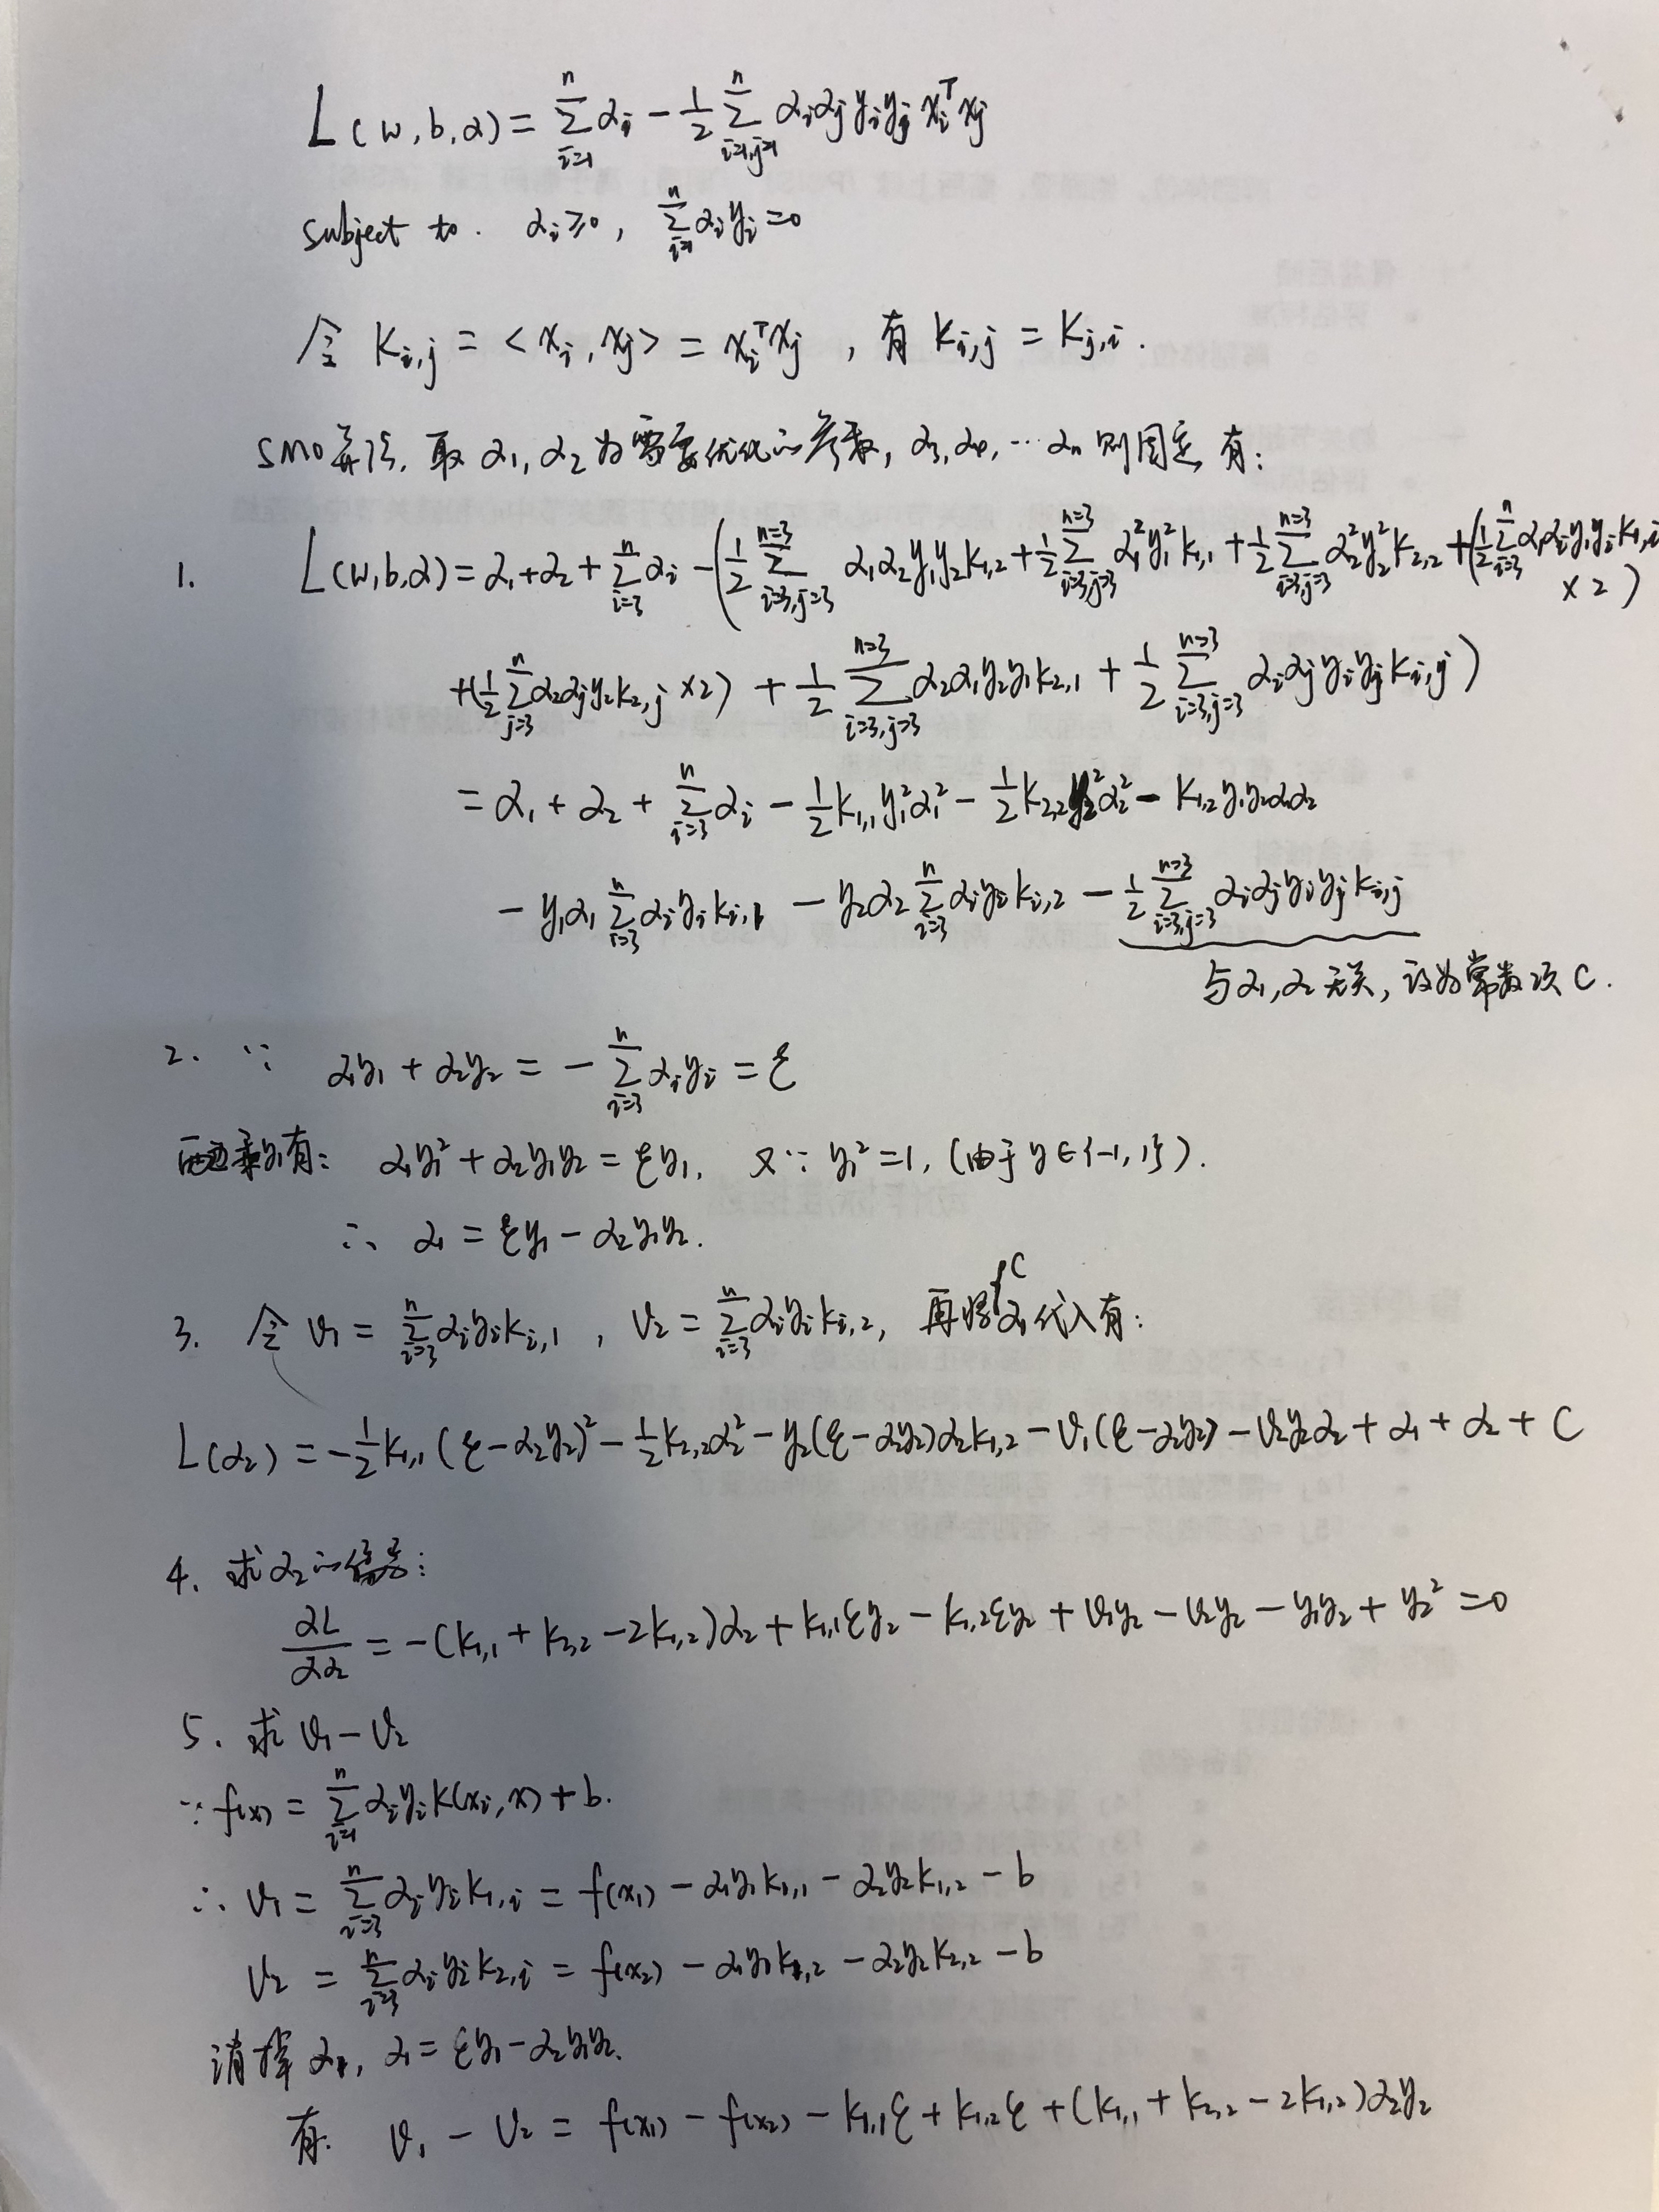 L(w,b,α) = Σ_{i=1}^{n} α_i − 1/2 Σ_{i=1,j=1}^{n} α_iα_jy_iy_jx_i^Tx_j
subject to. α_i≥0, Σ_{i=1}^{n} α_iy_i=0
令 K_{i,j} = <x_i, x_j> = x_i^Tx_j , 有 K_{i,j} = K_{j,i} .
SMO算法, 取 α_1, α_2 为需要优化的参数, α_3, α_4, ⋯ α_n 则固定, 有:
1. L(w,b,α) = α_1+α_2 + Σ_{i=3}^{n} α_i − (1/2 Σ_{i=3,j=3}^{n=3} α_1α_2y_1y_2K_{1,2} + 1/2 Σ_{i=3,j=3}^{n=3} α_1^2y_1^2K_{1,1} + 1/2 Σ_{i=3,j=3}^{n=3} α_2^2y_2^2K_{2,2} + (1/2 Σ_{i=3}^{n} α_1α_iy_1y_iK_{1,i} ×2)
+(1/2 Σ_{j=3}^{n} α_2α_jy_2K_{2,j} ×2) + 1/2 Σ_{i=3,j=3}^{n=3} α_2α_1y_2y_1K_{2,1} + 1/2 Σ_{i=3,j=3}^{n=3} α_iα_jy_iy_jK_{i,j})
= α_1 + α_2 + Σ_{i=3}^{n} α_i − 1/2 K_{1,1}y_1^2α_1^2 − 1/2 K_{2,2}y_2^2α_2^2 − K_{1,2}y_1y_2α_1α_2
− y_1α_1 Σ_{i=3}^{n} α_iy_iK_{i,1} − y_2α_2 Σ_{i=3}^{n} α_iy_iK_{i,2} − 1/2 Σ_{i=3,j=3}^{n=3} α_iα_jy_iy_jK_{i,j}
与α_1,α_2无关, 设为常数项 C.
2. ∵ α_1y_1 + α_2y_2 = − Σ_{i=3}^{n} α_iy_i = ξ
两边乘y_1有: α_1y_1^2 + α_2y_1y_2 = ξy_1, 又∵ y_1^2 =1, (由于 y∈{-1,1}).
∴ α_1 = ξy_1 − α_2y_1y_2.
3. 令 v_1 = Σ_{i=3}^{n} α_iy_iK_{i,1} , v_2 = Σ_{i=3}^{n} α_iy_iK_{i,2}, 再将{C α_1 代入有:
L(α_2) = −1/2 K_{1,1}(ξ−α_2y_2)^2 − 1/2 K_{2,2}α_2^2 − y_2(ξ−α_2y_2)α_2K_{1,2} − v_1(ξ−α_2y_2) − v_2y_2α_2 + α_1 + α_2 + C
4. 求α_2的偏导:
∂L/∂α_2 = −(K_{1,1} + K_{2,2} − 2K_{1,2})α_2 + K_{1,1}ξy_2 − K_{1,2}ξy_2 + v_1y_2 − v_2y_2 − y_1y_2 + y_2^2 =0
5. 求 v_1 − v_2
∵ f(x) = Σ_{i=1}^{n} α_iy_iK(x_i, x) + b.
∴ v_1 = Σ_{i=3}^{n} α_iy_iK_{1,i} = f(x_1) − α_1y_1K_{1,1} − α_2y_2K_{1,2} − b
v_2 = Σ_{i=3}^{n} α_iy_iK_{2,i} = f(x_2) − α_1y_1K_{1,2} − α_2y_2K_{2,2} − b
消掉 α_1, α_1 = ξy_1 − α_2y_1y_2.
有. v_1 − v_2 = f(x_1) − f(x_2) − K_{1,1}ξ + K_{1,2}ξ + (K_{1,1} + K_{2,2} − 2K_{1,2})α_2y_2